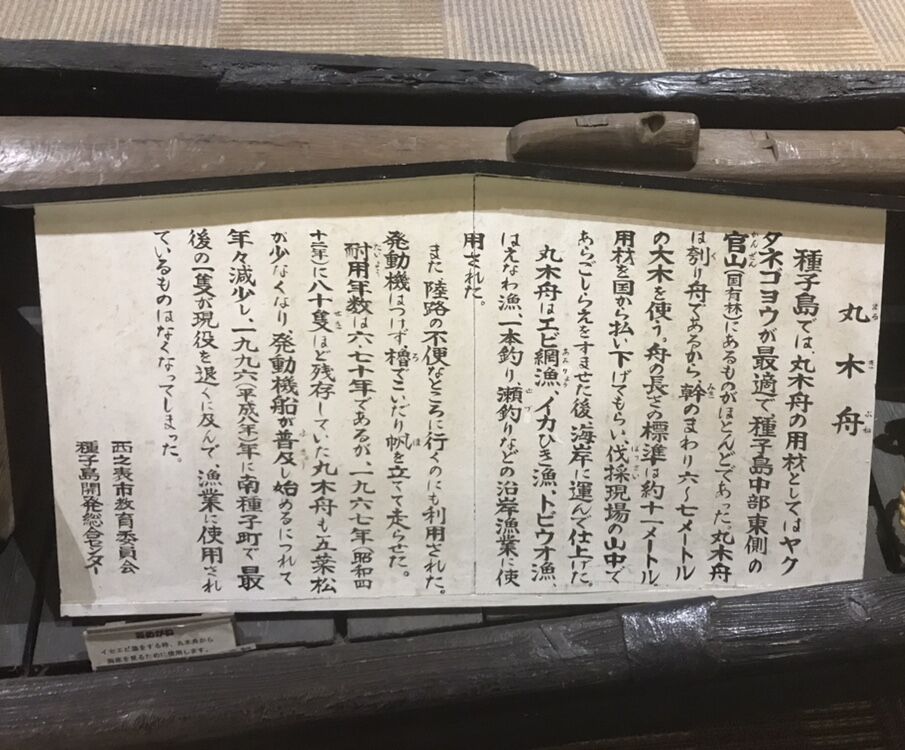 丸木舟
種子島では、丸木舟の用材としてはヤク
タネゴヨウが最適で、種子島中部東側の
官山(国有林)にあるものがほとんどであった。丸木舟
は刳り舟であるから、幹のまわり六〜七メートル
の大木を使う。舟の長さの標準は約十一メートル
用材を国から払い下げてもらい、伐採現場の山中で
あらごしらえをすませた後、海岸に運んで仕上げた。
丸木舟はエビ網漁、イカひき漁、トビウオ漁、
はえなわ漁、一本釣り、瀬釣りなどの沿岸漁業に使
用された。
また、陸路の不便なところに行くのにも利用された。
発動機はつけず、櫓でこいだり帆を立てて走らせた。
耐用年数は六七十年であるが、一九六七年(昭和四
十二年)に八十隻ほど残存していた丸木舟も、五葉松
が少なくなり、発動機船が普及し始めるにつれて
年々減少し、一九九六(平成八年)年に南種子町で最
後の一隻が現役を退くに及んで、漁業に使用され
ているものはなくなってしまった。
西之表市教育委員会
種子島開発総合センター
めがね
イセエビ漁をする時、丸木舟から
海底を見るために使用します。